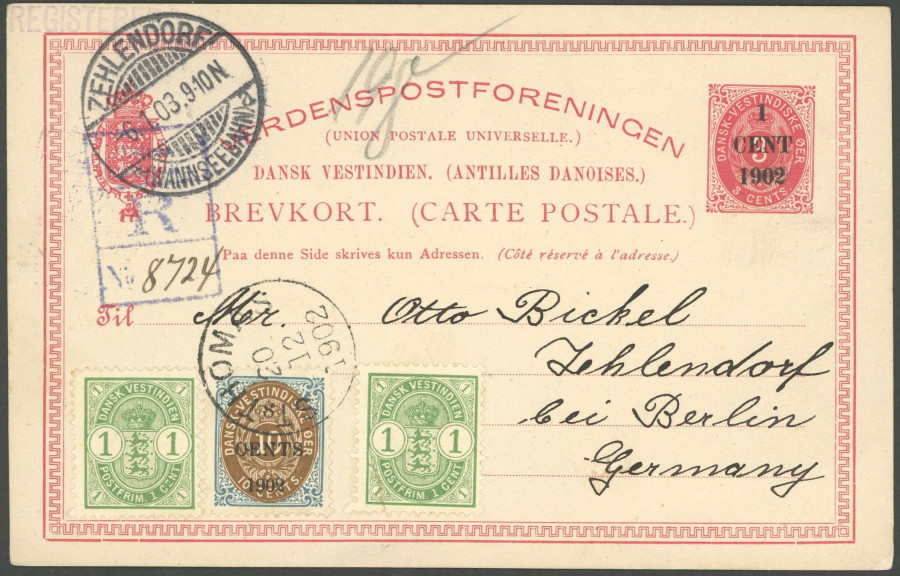 REGISTERED
ZEHLENDORF
6.1.03.9-10N.
(WANNSEEBAHN)
VERDENSPOSTFORENINGEN
(UNION POSTALE UNIVERSELLE.)
DANSK VESTINDIEN. (ANTILLES DANOISES.)
BREVKORT. (CARTE POSTALE.)
Paa denne Side skrives kun Adressen. (Côté réservé à l'adresse.)
DANSK-VESTINDISKE ØER
1
CENT
1902
3 CENTS.
R
No 8724
Til Mr. Otto Bickel
Zehlendorf
bei Berlin
Germany
20
12
1902
DANSK VESTINDIEN
1 1
POSTFRIM. 1 CENT
DANSK VESTINDISKE ØER
8
10
CENTS
1902
CENTS.
DANSK VESTINDIEN
1 1
POSTFRIM. 1 CENT